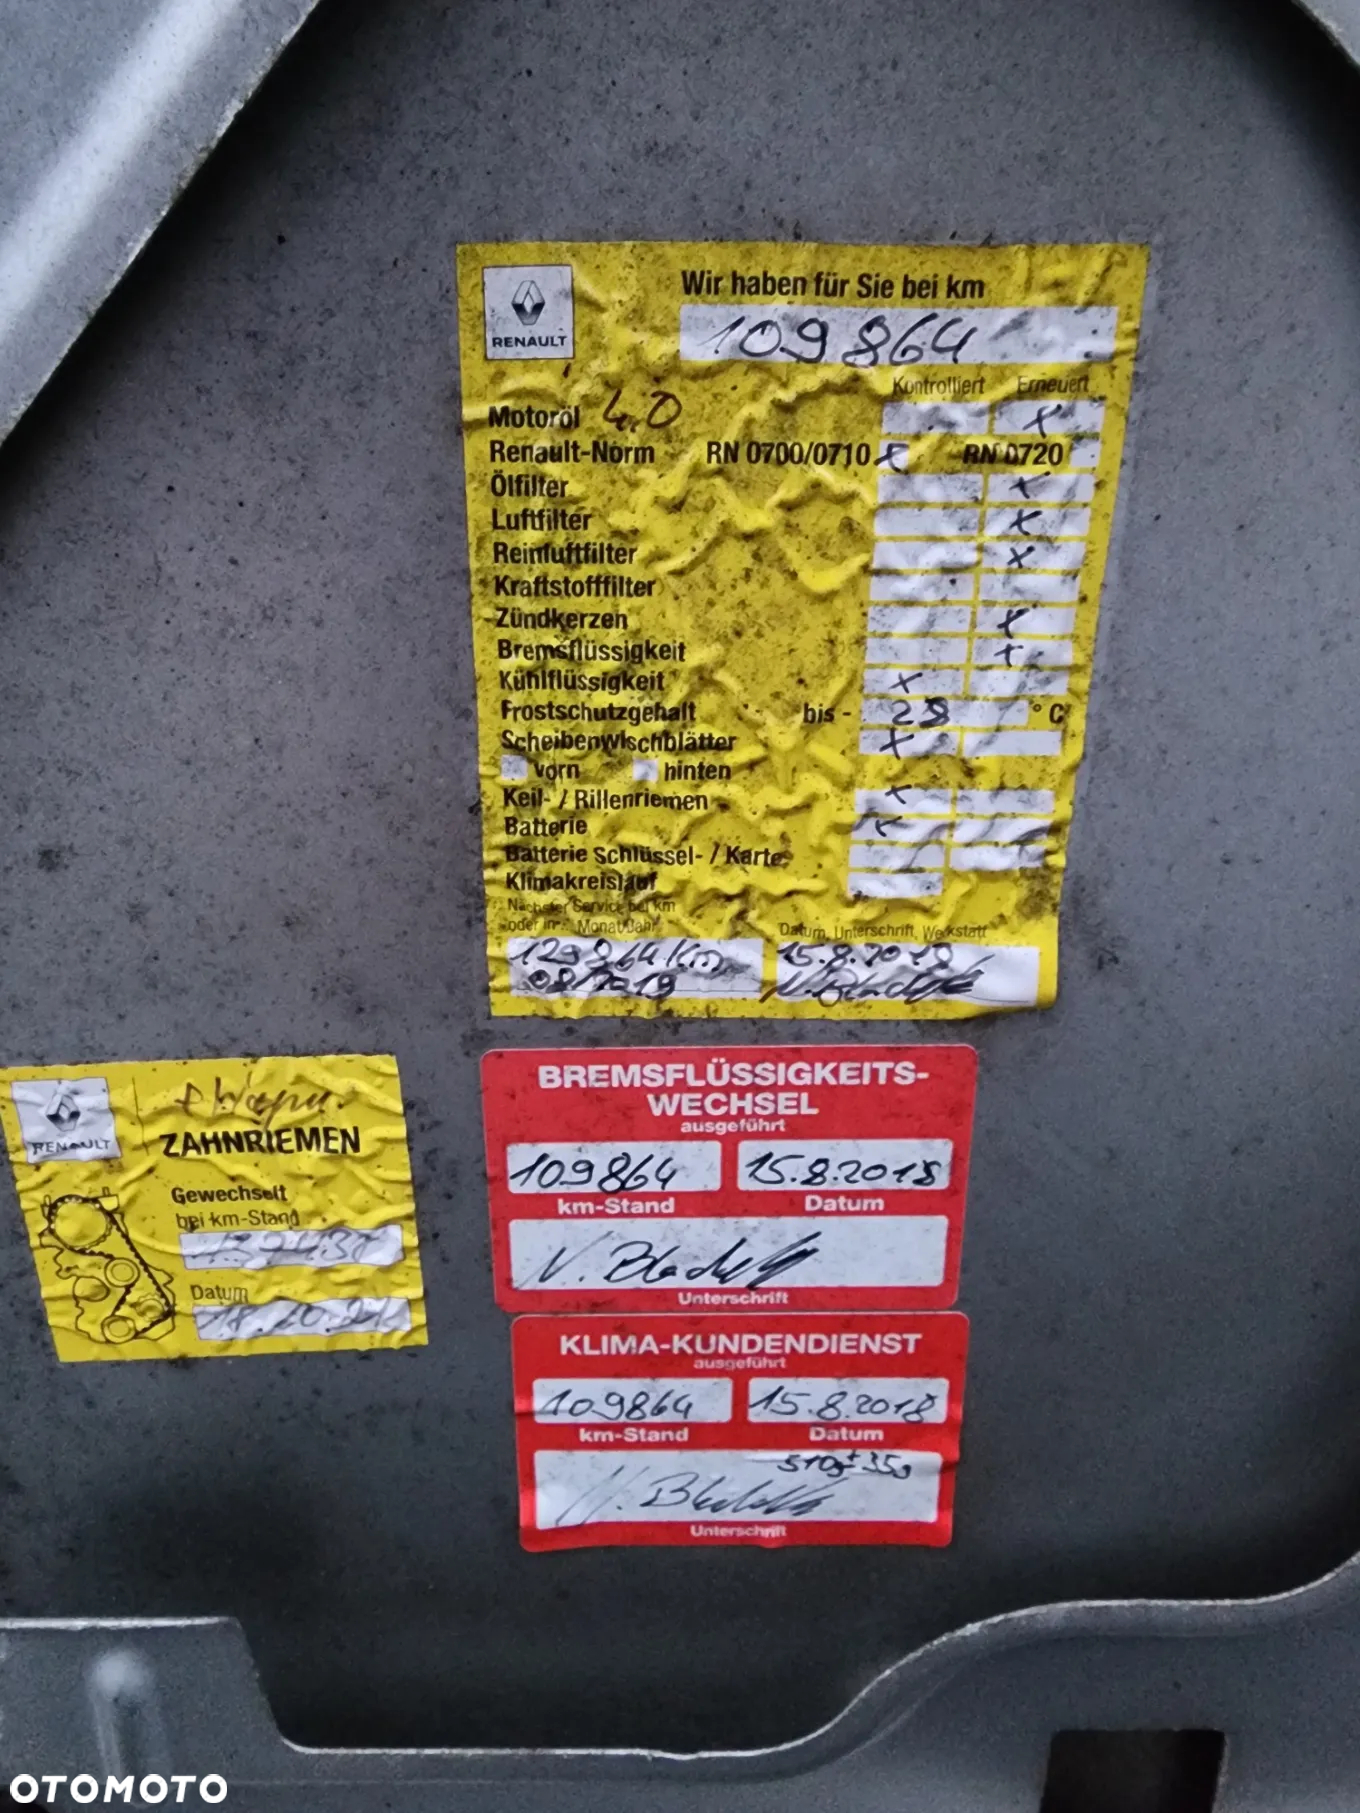 RENAULT
Wir haben für Sie bei km
109 864
Kontrolliert Erneuert
Motoröl 4.0 x
Renault-Norm RN 0700/0710 x RN 0720
Ölfilter x
Luftfilter x
Reinluftfilter x
Kraftstofffilter
Zündkerzen x
Bremsflüssigkeit x
Kühlflüssigkeit x
Frostschutzgehalt bis - 28 °C
Scheibenwischblätter x
vorn hinten
Keil- / Rillenriemen x
Batterie x
Batterie Schlüssel- / Karte
Klimakreislauf
Nächster Service bei km
oder in... Monat/Jahr
Datum, Unterschrift, Werkstatt
129864 Km
08/2019
15.8.2018
RENAULT
ZAHNRIEMEN
Gewechselt
bei km-Stand
Datum
BREMSFLÜSSIGKEITS-
WECHSEL
ausgeführt
109864 15.8.2018
km-Stand Datum
Unterschrift
KLIMA-KUNDENDIENST
ausgeführt
109864 15.8.2018
km-Stand Datum
510g±35g
Unterschrift
OTOMOTO